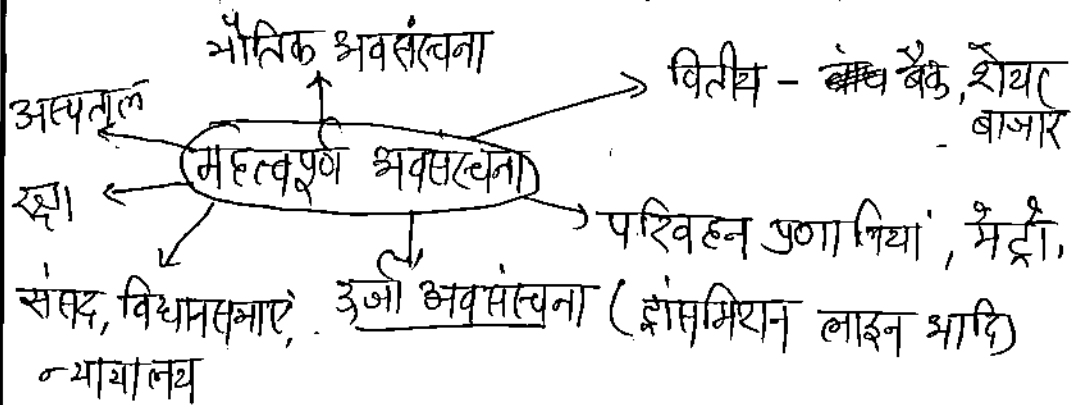 भौतिक अवसंरचना
वित्तीय - बैंक, शेयर
बाजार
अस्पताल
महत्वपूर्ण अवसरचना
रक्षा
परिवहन प्रणालियां, मेट्रो,
संसद, विधानसभाएं,
ऊर्जा अवसंरचना (ट्रांसमिशन लाइन आदि)
न्यायालय